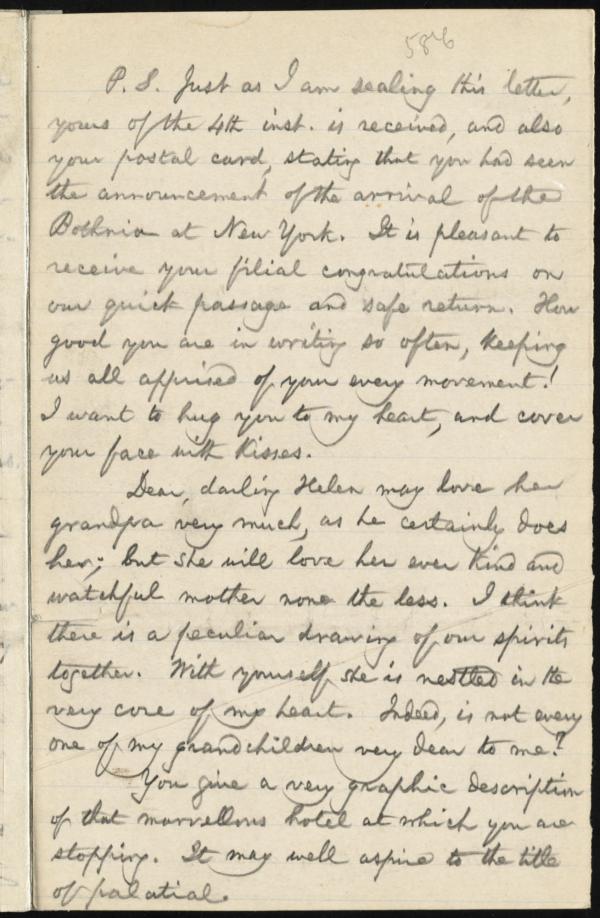 586
P. S. Just as I am sealing this letter,
yours of the 4th inst. is received, and also
your postal card, stating that you had seen
the announcement of the arrival of the
Bothnia at New York. It is pleasant to
receive your filial congratulations on
our quick passage and safe return. How
good you are in writing so often, keeping
us all apprised of your every movement!
I want to hug you to my heart, and cover
your face with kisses.
Dear, darling Helen may love her
grandpa very much, as he certainly does
her; but she will love her ever kind and
watchful mother none the less. I think
there is a peculiar drawing of our spirits
together. With yourself she is nestled in the
very core of my heart. Indeed, is not every
one of my grandchildren very dear to me?
You give a very graphic description
of that marvellous hotel at which you are
stopping. It may well aspire to the title
of palatial.